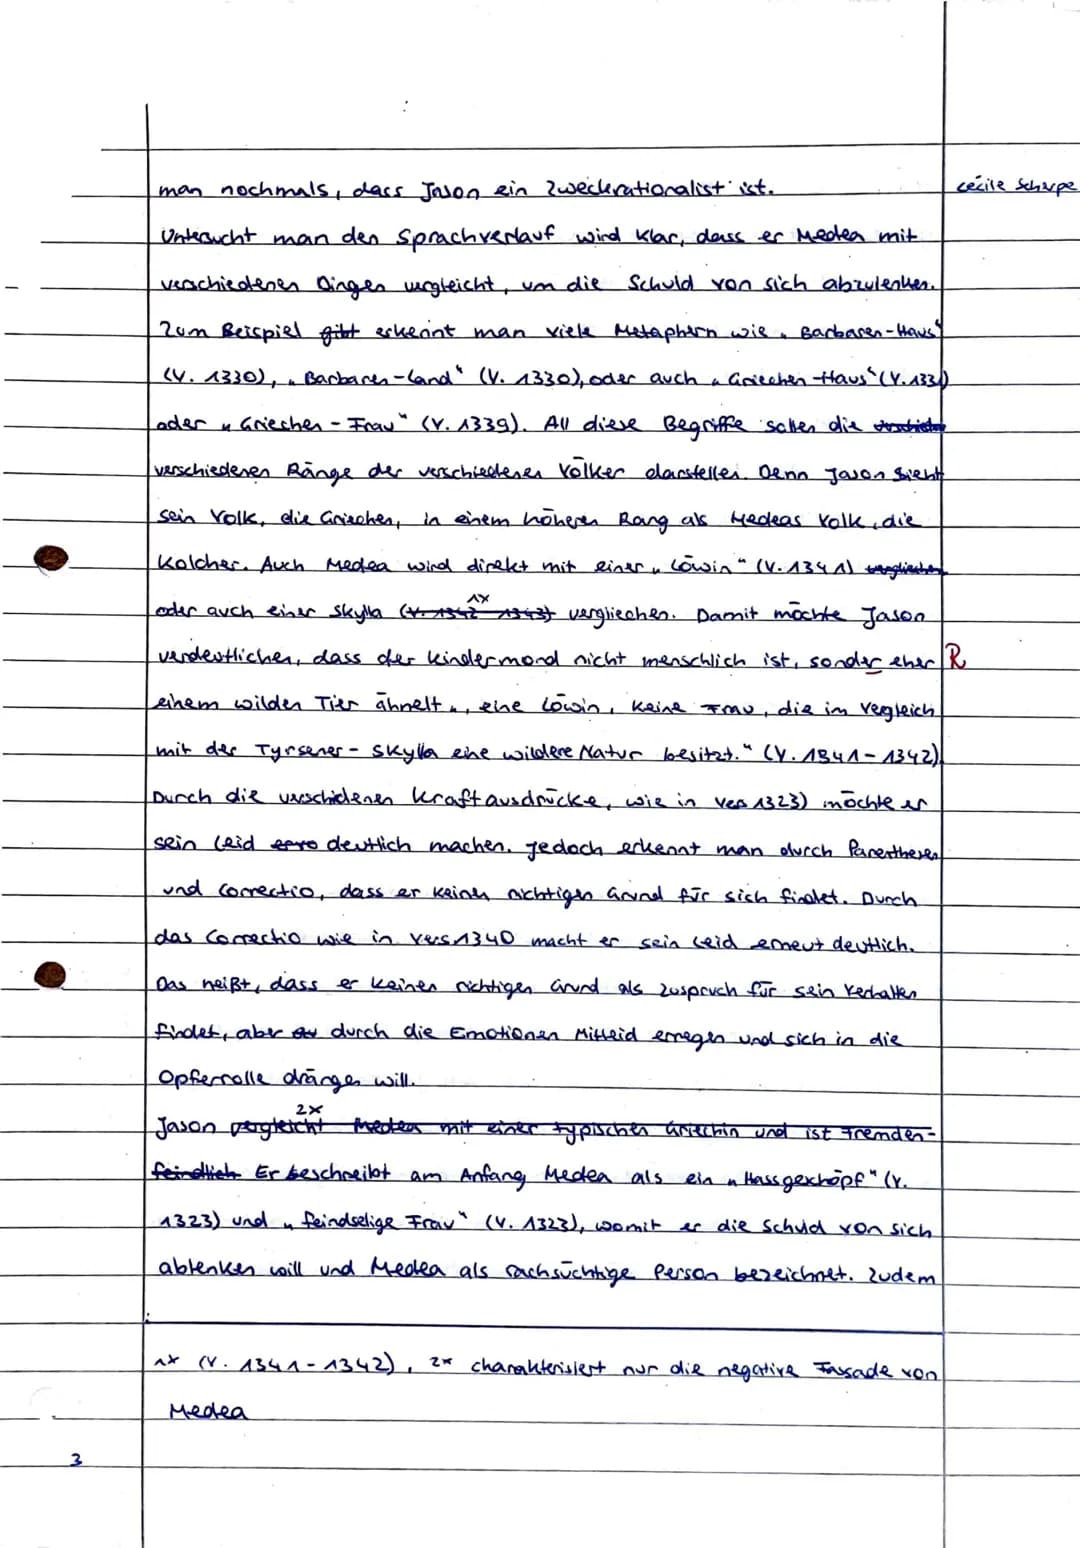 man nochmals, dass Jason ein Zweckrationalist ist.
cécile Scherpe
Untersucht man den Sprachverlauf wird klar, dass er Medea mit
verschiedenen Dingen vergleicht, um die Schuld von sich abzulenken.
Zum Beispiel gibt erkennt man viele Metaphern wie „Barbaren-Haus"
(V. 1330), „Barbaren-Land" (V. 1330), oder auch „Griechen-Haus" (V. 1331)
oder „Griechen-Frau" (V. 1339). All diese Begriffe sollen die
verschiedenen Ränge der verschiedenen Völker darstellen. Denn Jason sieht
sein Volk, die Griechen, in einem höheren Rang als Medeas Volk, die
Kolcher. Auch Medea wird direkt mit einer „Löwin" (V. 1341) verglichen
1x
oder auch einer Skylla (V. 1342-1343) vergliechen. Damit möchte Jason
verdeutlichen, dass der Kindermord nicht menschlich ist, sonder eher
R
einem wilden Tier ähnelt „, eine Löwin, keine Frau, die im Vergleich
mit der Tyrsener-Skylla eine wildere Natur besitzt." (V. 1341-1342)
Durch die verschidenen Kraftausdrücke, wie in Vers 1323) möchte er
sein Leid deutlich machen. Jedoch erkennt man durch Parenthesen
und Correctio, dass er keinen richtigen Grund für sich findet. Durch
das Correctio wie in Vers 1340 macht er sein Leid erneut deutlich.
Das heißt, dass er keinen richtigen Grund als Zuspruch für sein Verhalten
findet, aber durch die Emotionen Mitleid erregen und sich in die
Opferrolle drängen will.
2x
Jason vergleicht Medea mit einer typischen Griechin und ist fremden-
feindlich Er beschreibt am Anfang Medea als ein „Hassgeschöpf" (V.
1323) und „feindselige Frau" (V. 1323), womit er die Schuld von sich
ablenken will und Medea als rachsüchtige Person bezeichnet. Zudem
1x (V. 1341-1342), 2x charakterisiert nur die negative Fassade von
Medea
3